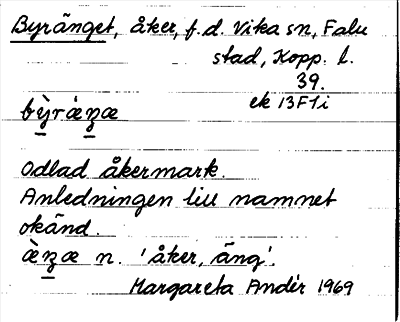 Byränget, åker, f.d. Vika sn, Falu
stad, Kopp. l.
39.
ek 13F1i
Odlad åkermark.
Anledningen till namnet
okänd.
n. 'åker, äng'.
Margareta Andér 1969